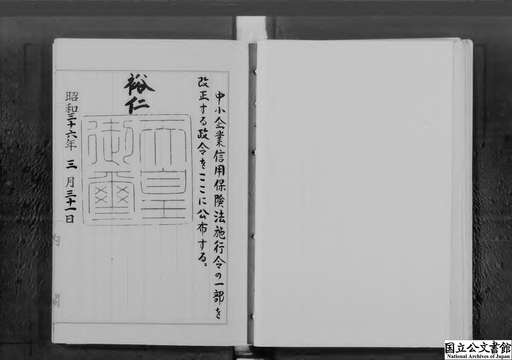 中小企業信用保険法施行令の一部を
改正する政令をここに公布する。
裕仁
天皇
御璽
昭和三十六年三月三十一日
内閣
国立公文書館
National Archives of Japan